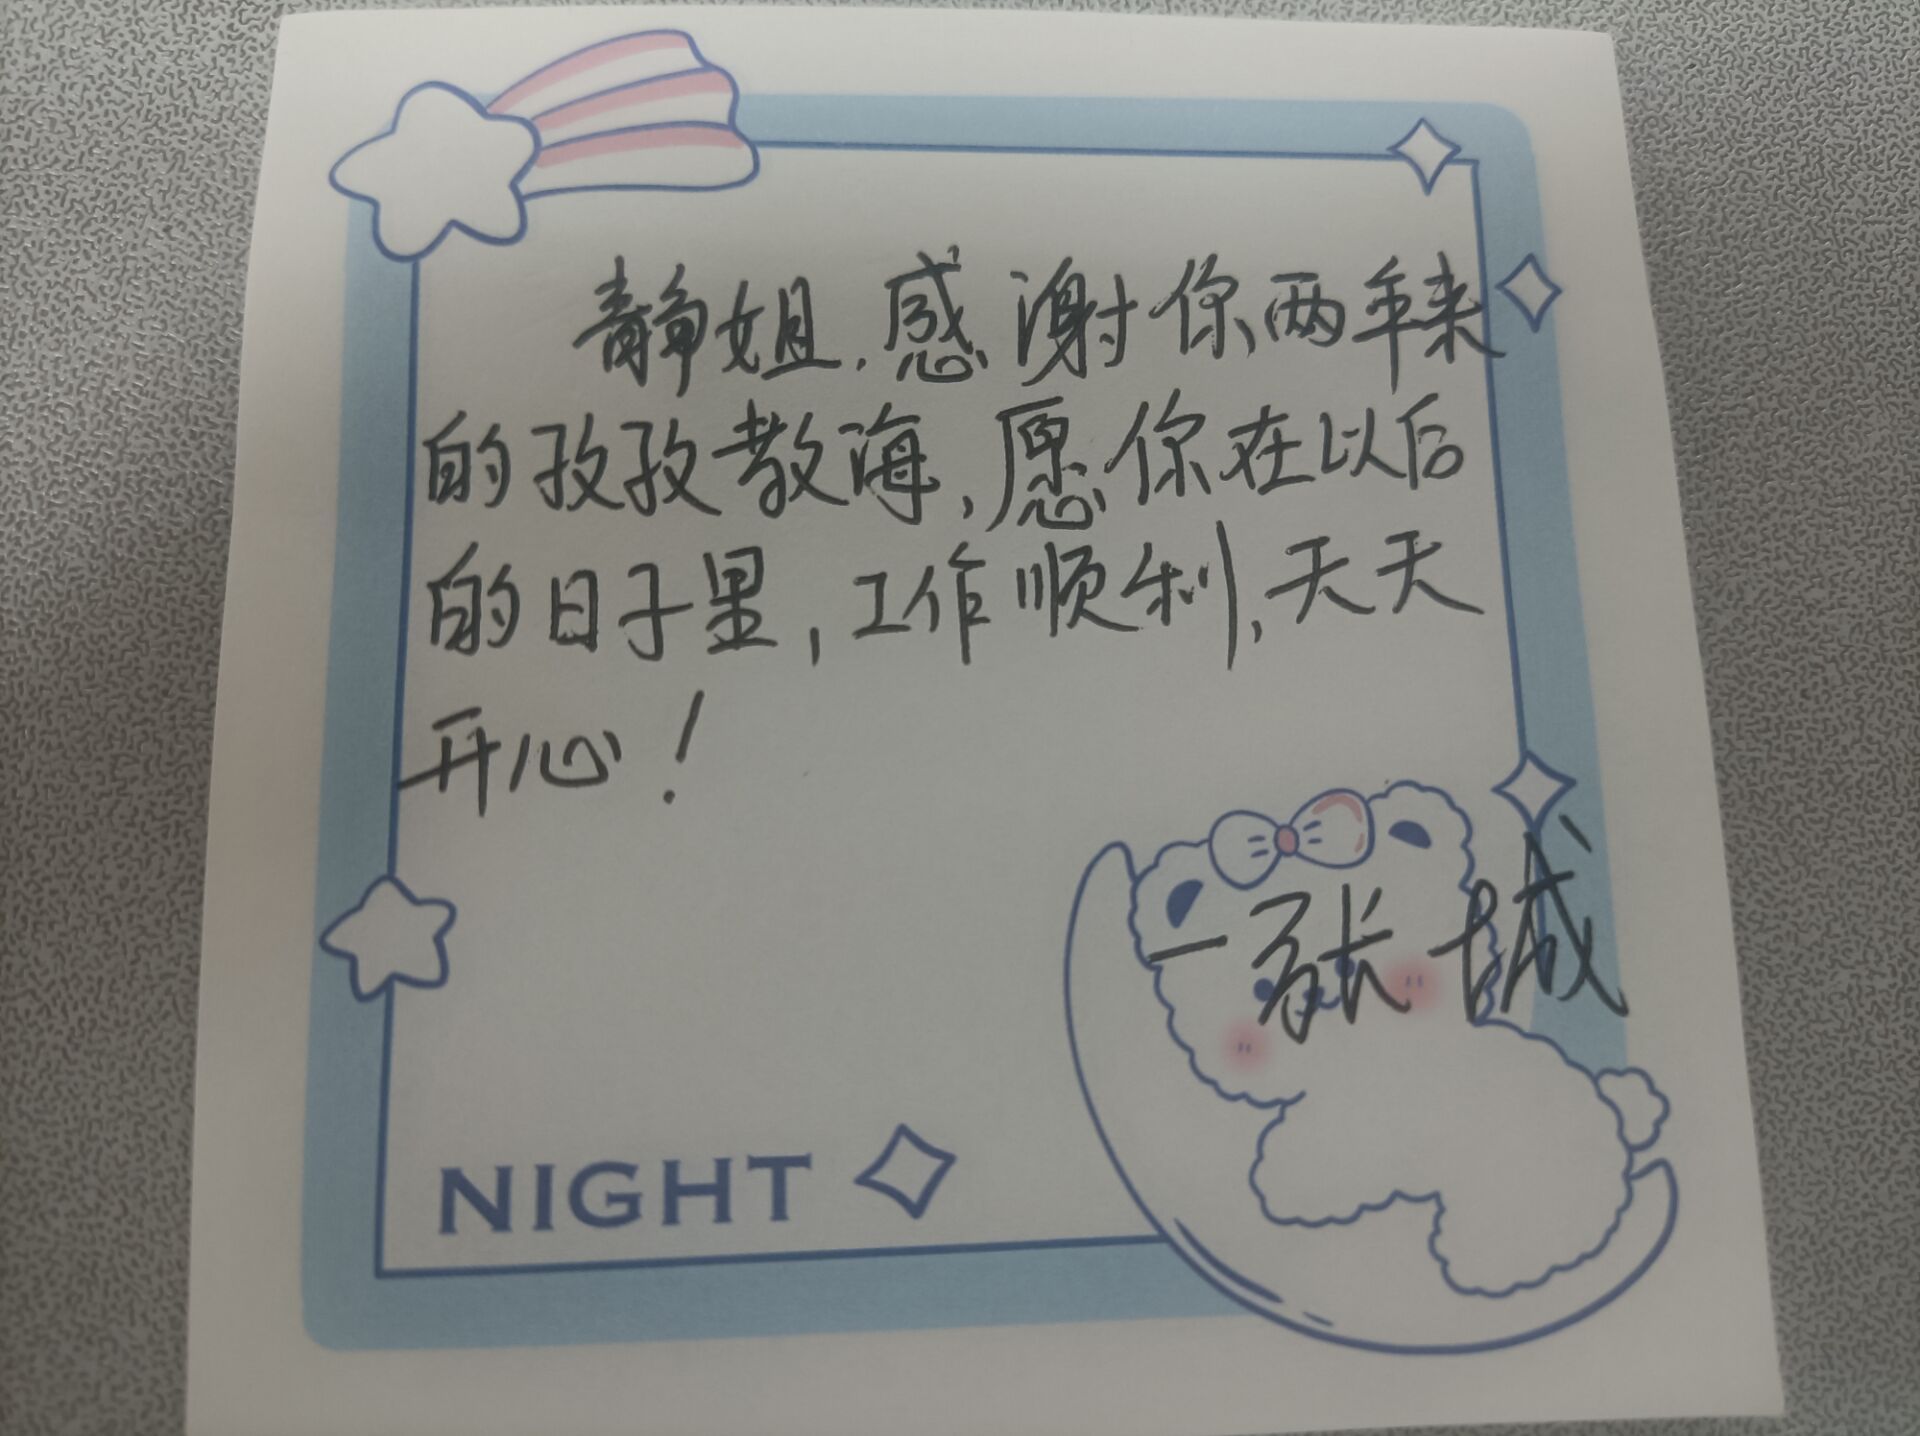 静姐，感谢你两年来
的孜孜教海，愿你在以后
的日子里，工作顺利，天天
开心！
—张城
NIGHT